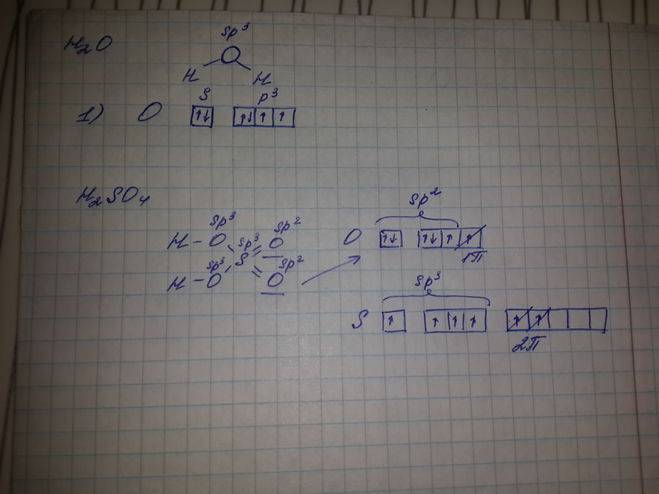 H₂O
sp³
O
H H
S p³
1) O ↑↓ ↑↓ ↑ ↑
H₂SO₄
sp³ sp²
H - O sp³ = O
S
H - O sp³ = O sp²
sp²
O ↑↓ ↑↓ ↑ ↑
1π
sp³
S ↑ ↑ ↑ ↑ ↑ ↑
2π